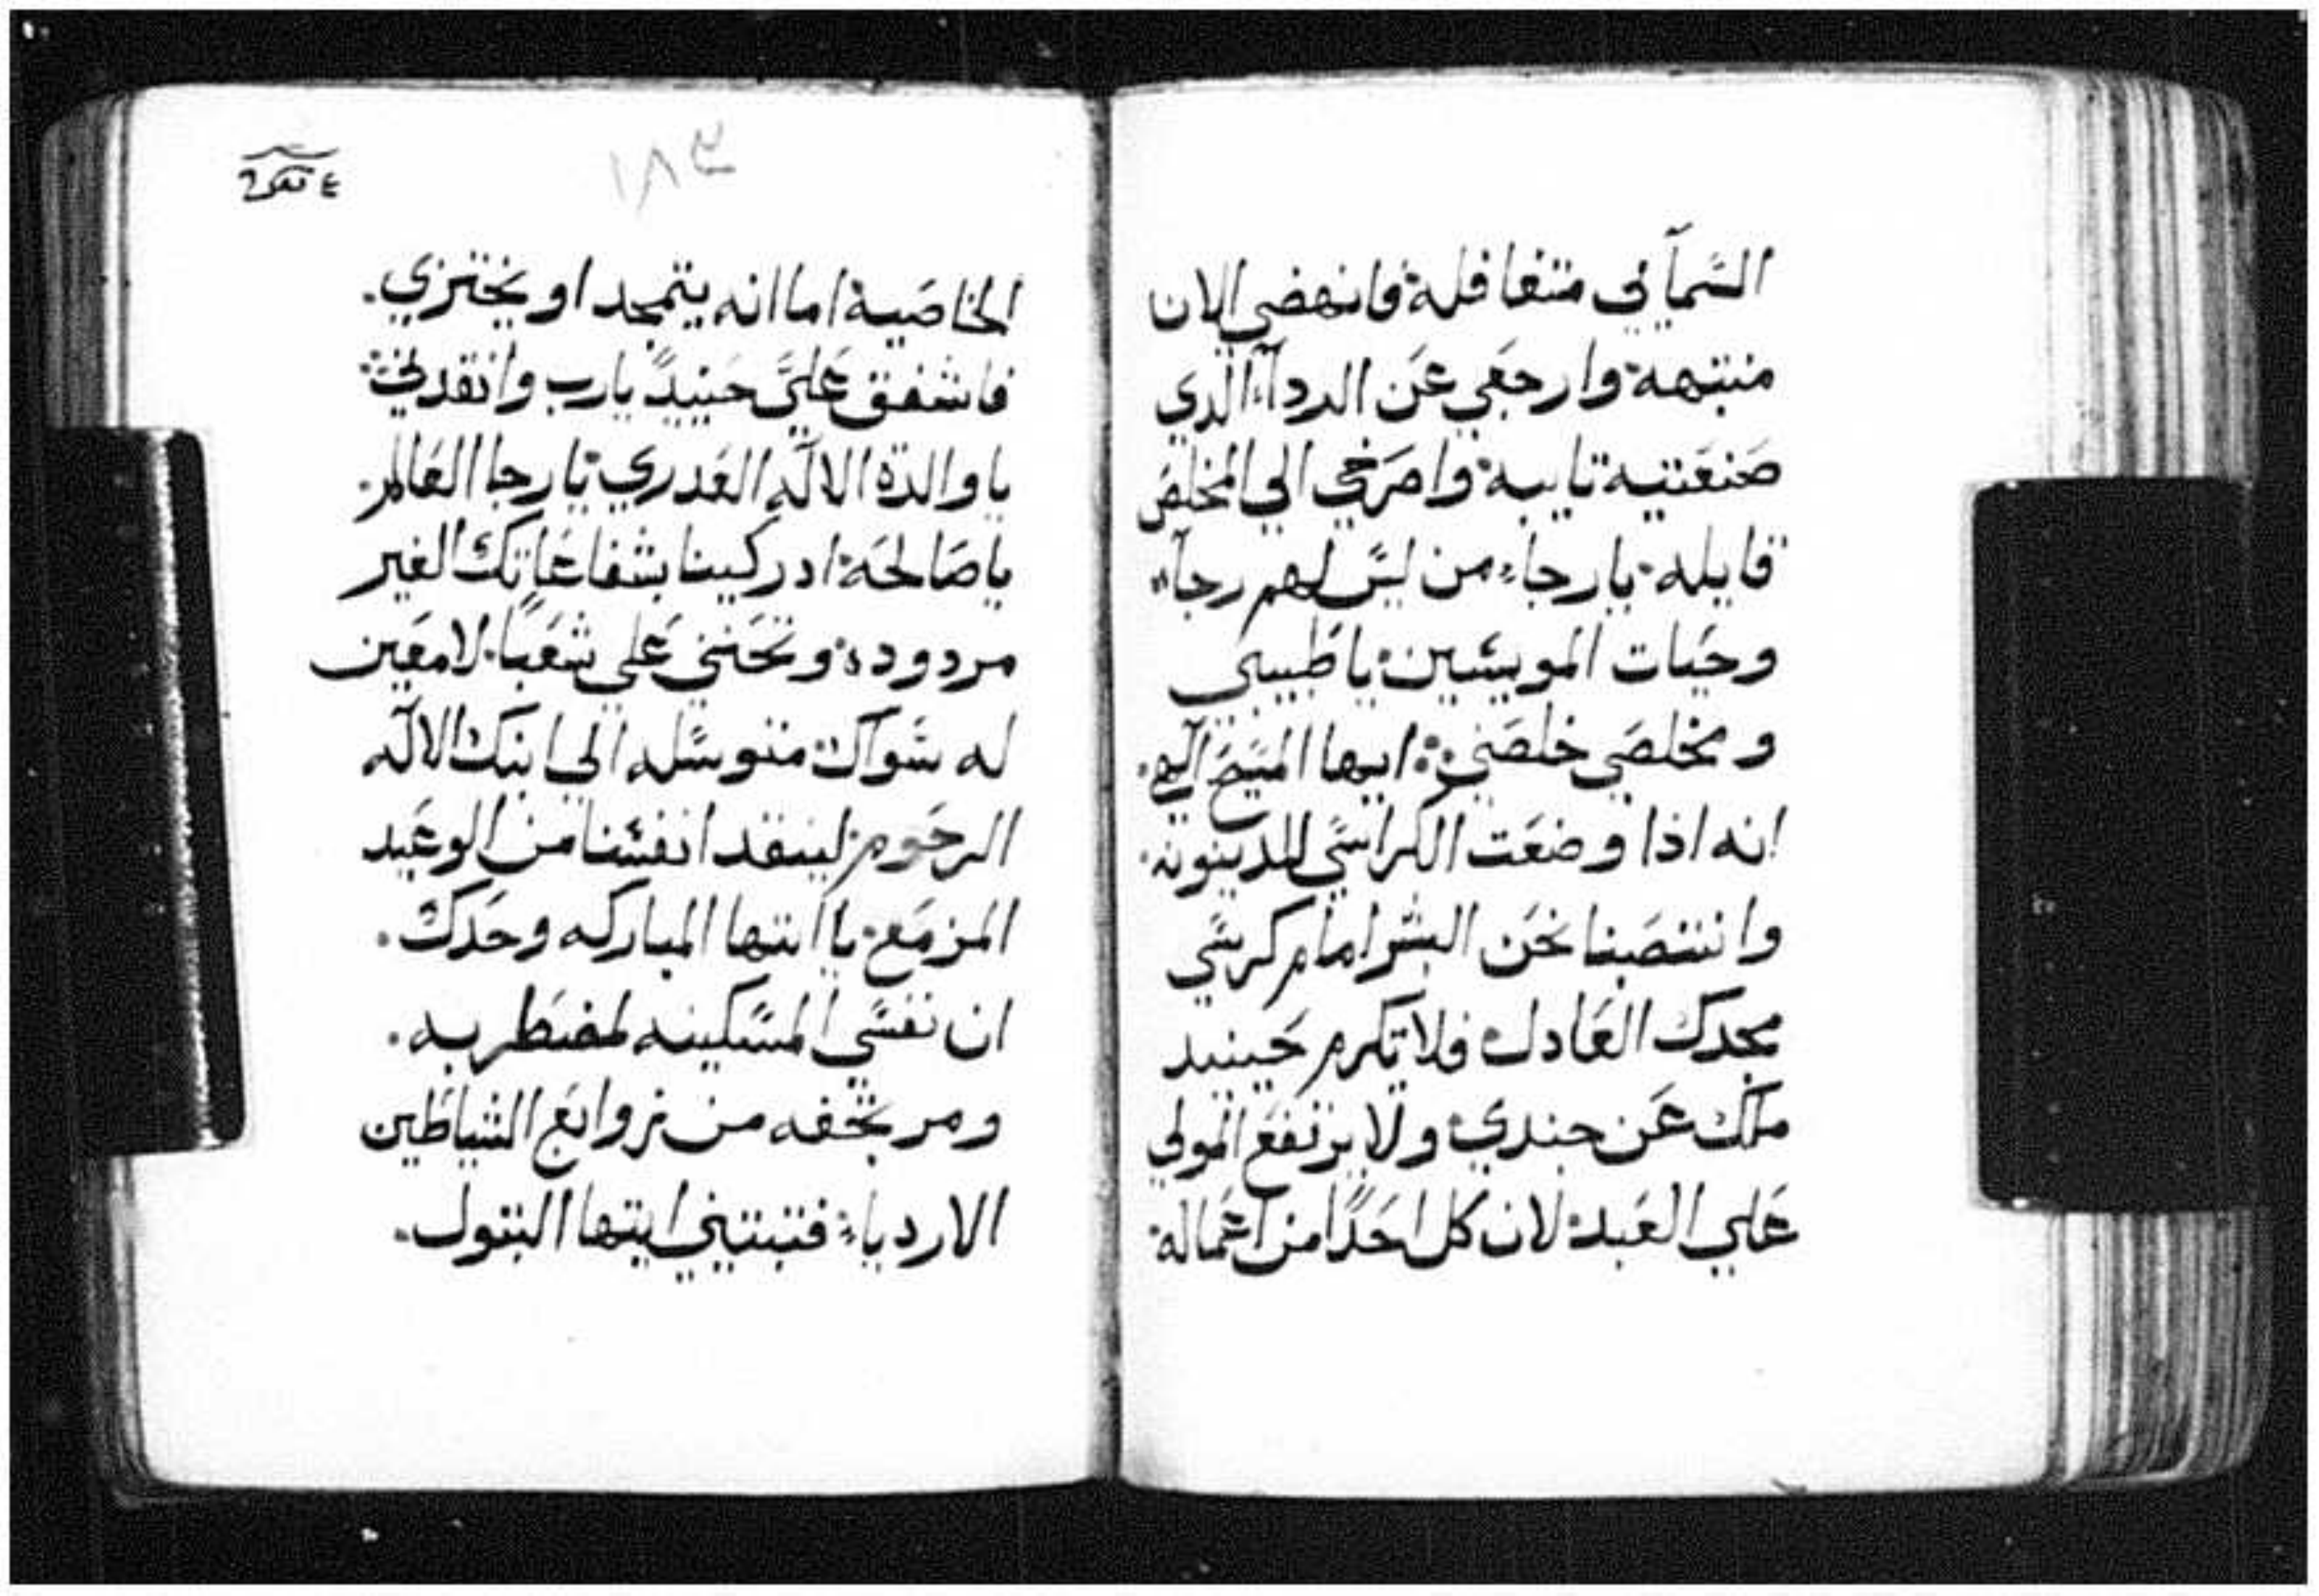 السمآئي متغافلة فانهضي الان
منتبهة وارجعي عن الردآء الذي
صنعتيه تايبة واصرخي الي المخلص
قايله يارجاء من ليس لهم رجآء
وحيات المويسين ياطبيبي
ومخلصي خلصني ايها المسيح الهي
انه اذا وضعت الكراسي للدينونه
وانتصبنا نحن البشر امام كرسي
مجدك العادل فلا تكرم حينيد
ملك عن جندي ولا يرتفع المولي
علي العبد لان كل احدًا من اعماله
١٨٣
الخاصية اما انه يتمجد او يختزي.
فاشفق عليَّ حينيدً يارب وانقدني
ياوالدة الاله العدري يارجا العالم
ياصالحة ادركينا بشفاعاتك الغير
مردوده وتحنني علي شعبًا لا معين
له سواك متوسله الي ابنك الاله
الرحوم لينقد انفسنا من الوعيد
المزمع يا ايتها المباركه وحدك.
ان نفسي المسكينه لمضطربه.
ومرتجفه من زوابع الشياطين
الاردياء فتبتيني ايتها البتول.